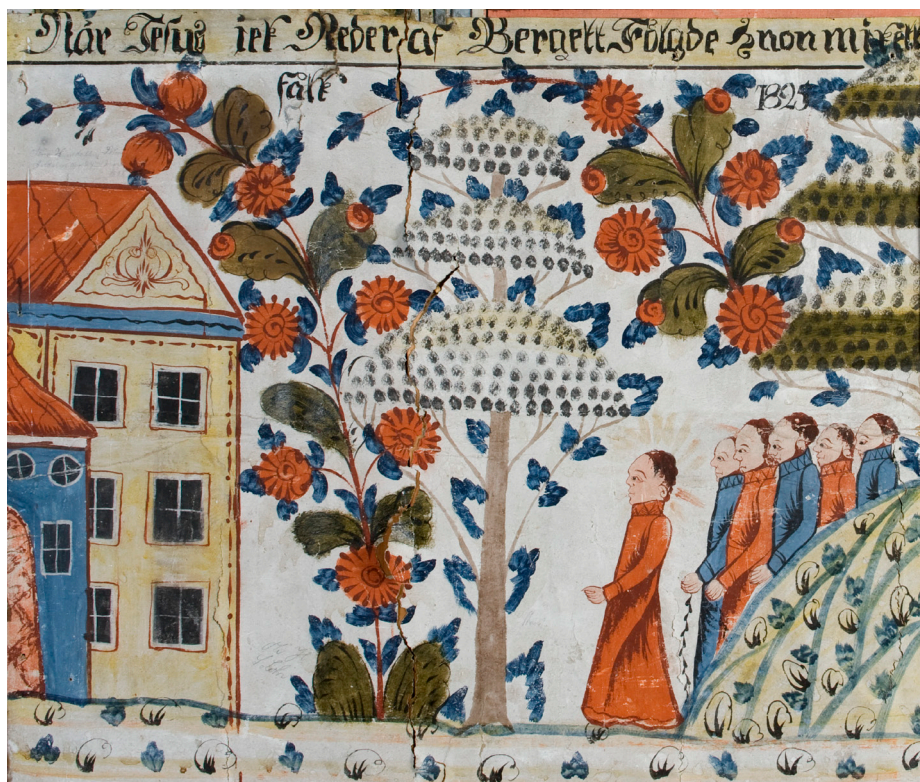 När Jesus iek Neder af Bergett Fölgde Hnon mikett
falk 1825